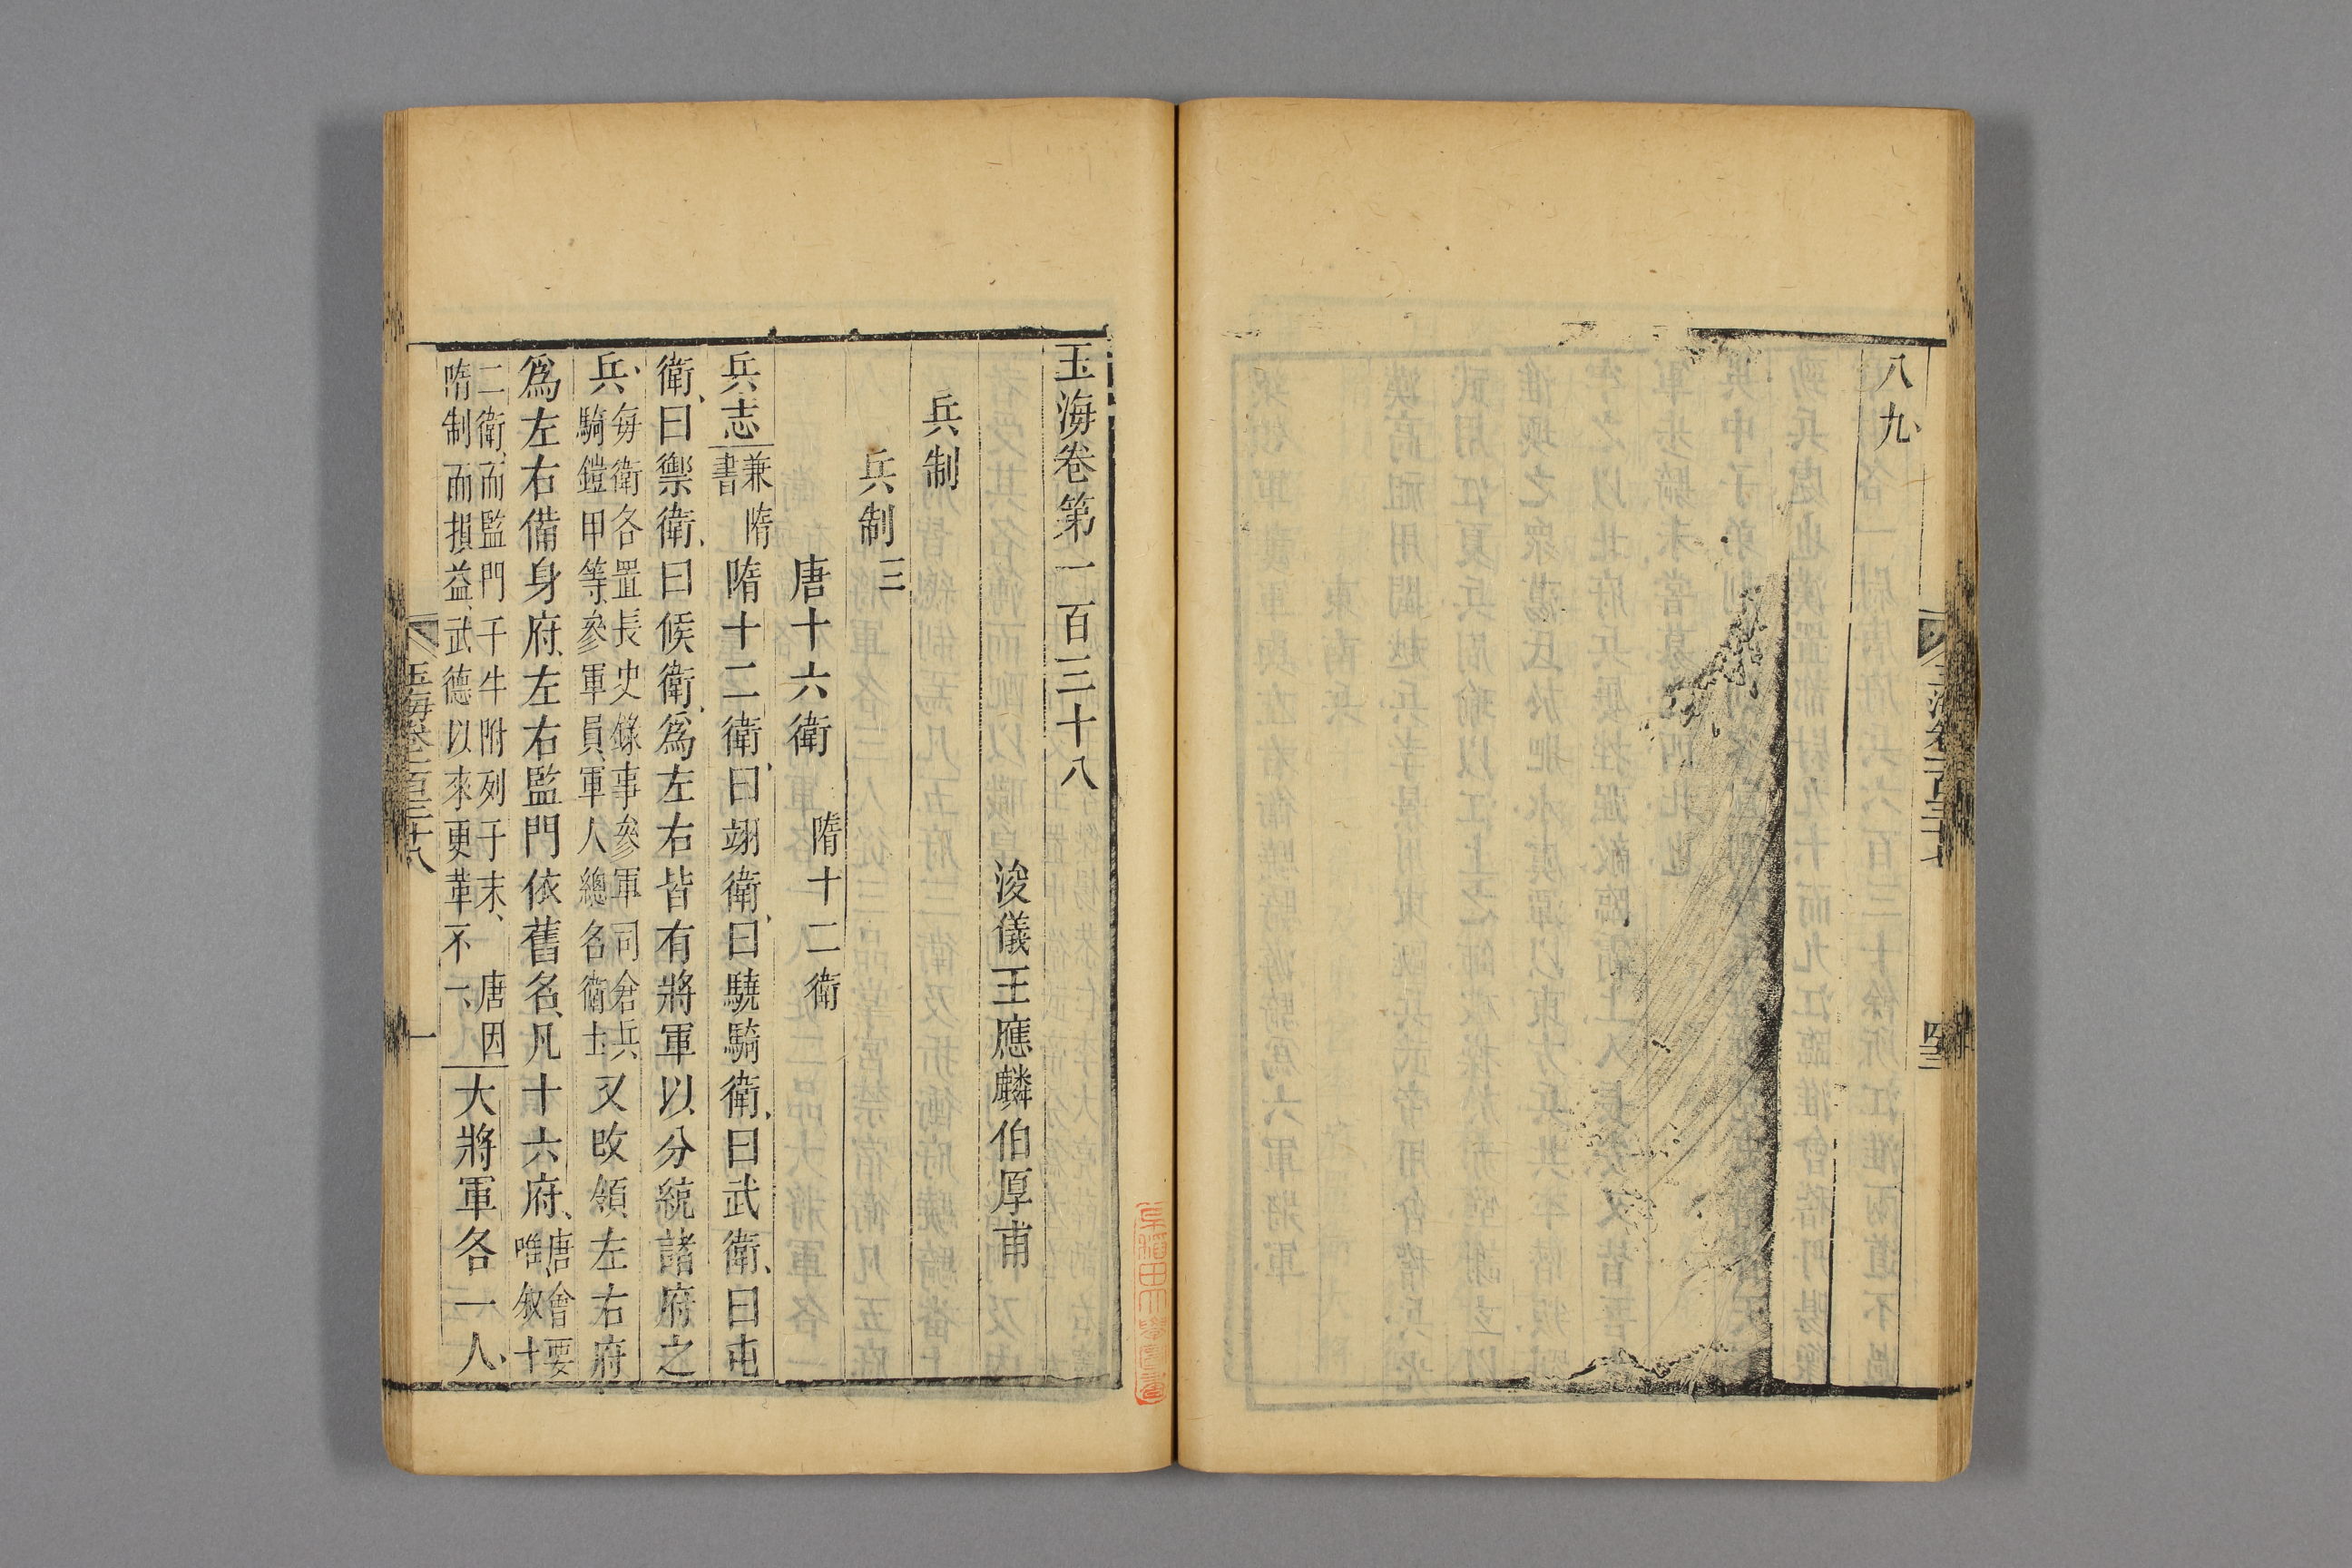 八九
玉海卷一百三十七
四三
玉海卷第一百三十八
浚儀王應麟伯厚甫
兵制
兵制三
唐十六衛 隋十二衛
兵志兼隋書 隋十二衛曰翊衛曰驍騎衛曰武衛曰屯
衛曰禦衛曰候衛為左右皆有將軍以分統諸府之
兵每衛各置長史錄事參軍司倉兵騎鎧甲等參軍員軍人總名衛士又改領左右府
為左右備身府左右監門依舊名凡十六府唐會要唯叙十
二衛而監門千牛附列于末唐因隋制而損益武德以來更革不一大將軍各一人
玉海卷一百三十八
一
早稻田大學圖書